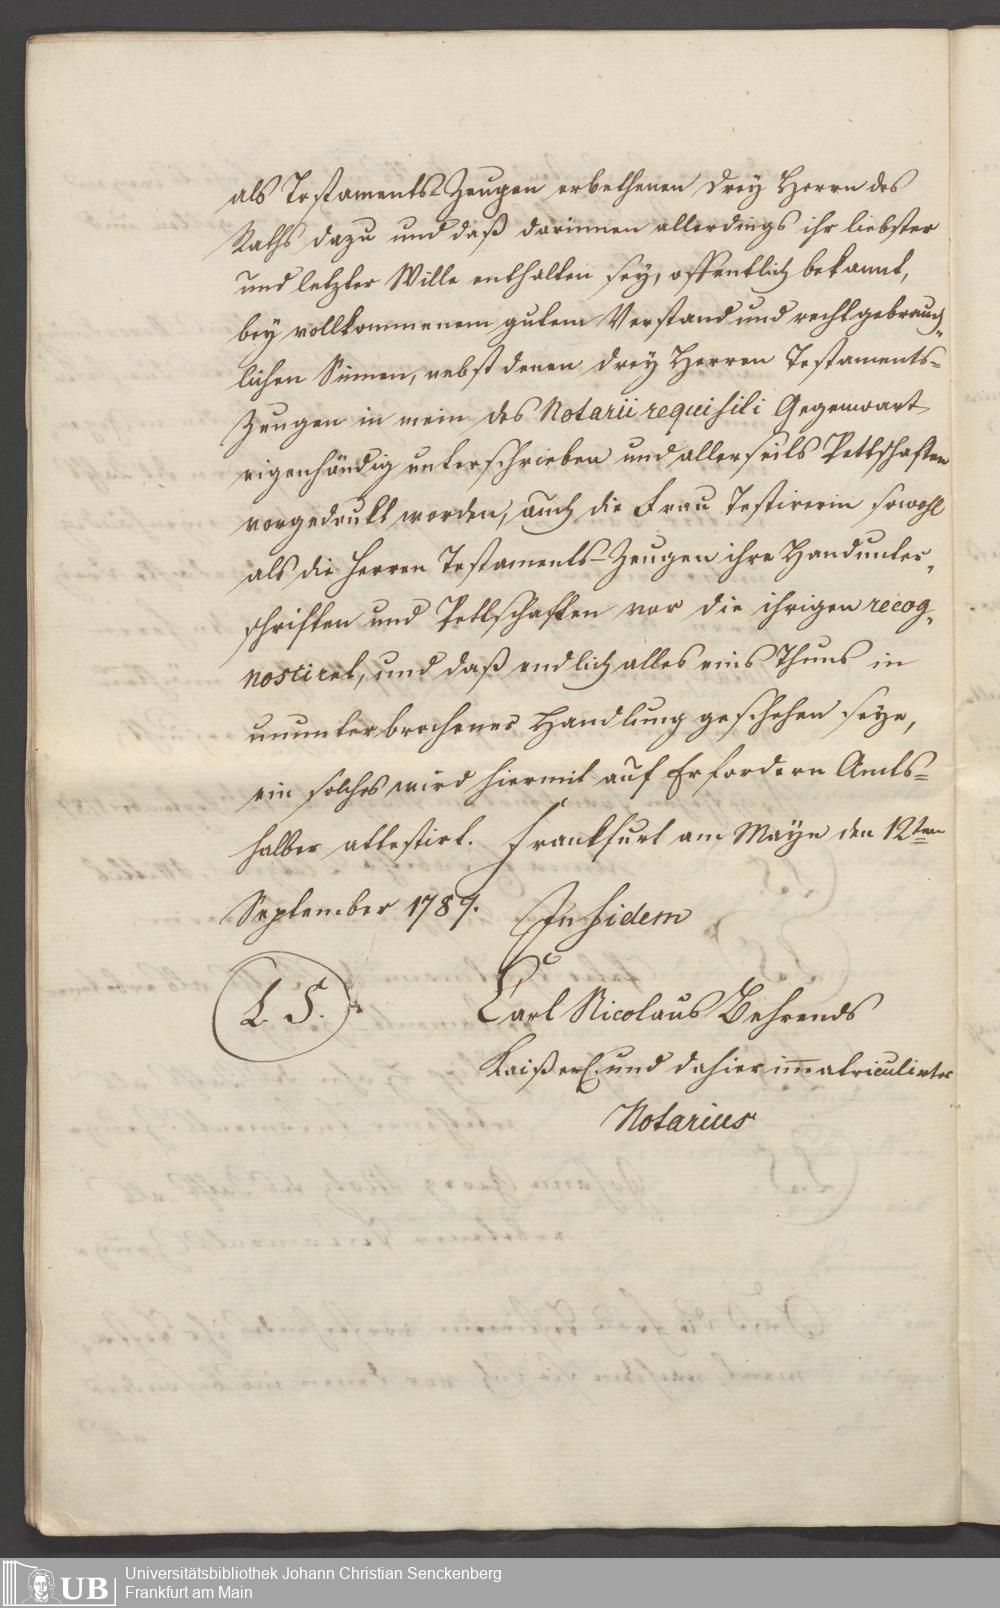 als Testaments-Zeugen erbethenen drey Herrn des
Raths dazu und daß darinnen allerdings ihr liebster
und letzter Wille enthalten sey, offentlich bekannt,
bey vollkommenem gutem Verstand und recht gebräuch-
lichen Sinnen, nebst denen drey Herren Testaments-
Zeugen in mein des Notarii requisiti Gegenwart
eigenhändig unterschrieben und allerseits Pettschaften
vorgedrukt worden, auch die Frau Testirerin sowohl
als die Herren Testaments-Zeugen ihre Handunter-
schriften und Pettschafften vor die ihrigen recog-
nosciret, und daß endlich alles eins Thuns in
ununterbrochener Handlung geschehen seye,
ein solches wird hiermit auf Erfordern Amts-
halber attestirt. Franckfurt am Mayn den 12ten
September 1787.
In fidem
L. S.
Carl Nicolaus Behrends
Kaißerl. und dahier im̅atriculirter
Notarius
UB
Universitätsbibliothek Johann Christian Senckenberg
Frankfurt am Main